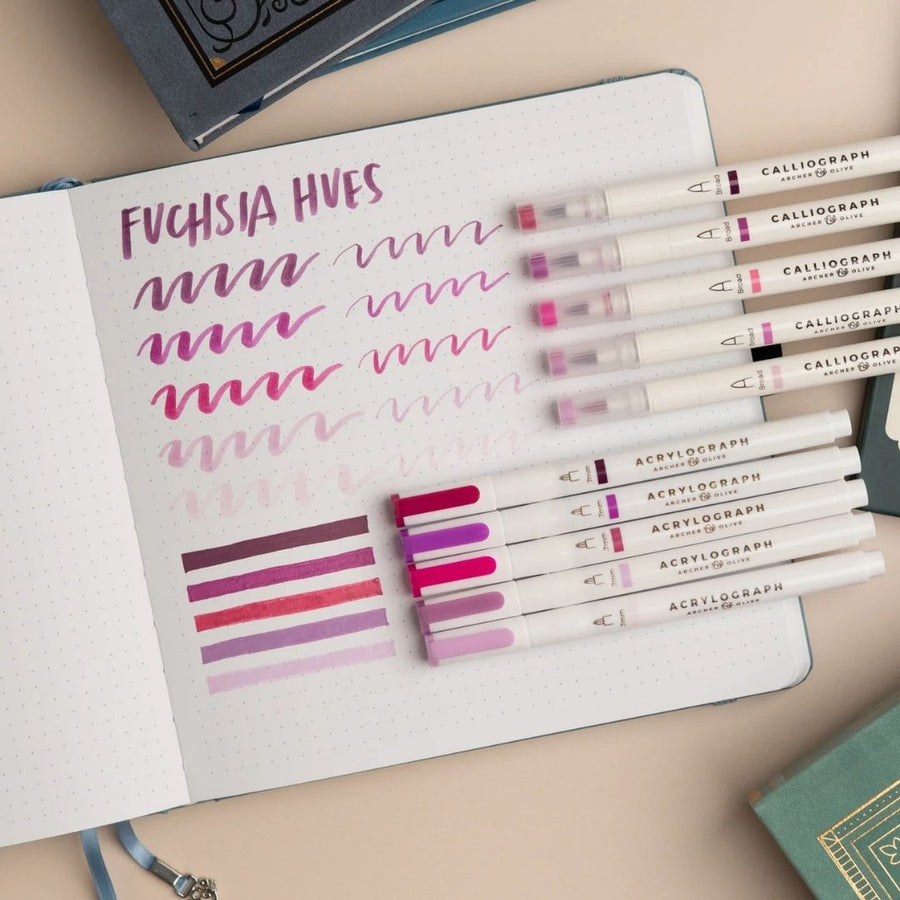 FUCHSIA HUES
Broad CALLIOGRAPH
ARCHER & OLIVE
Broad CALLIOGRAPH
ARCHER & OLIVE
Broad CALLIOGRAPH
ARCHER & OLIVE
Broad CALLIOGRAPH
ARCHER & OLIVE
Broad CALLIOGRAP
ARCHER & OLIVE
.7mm ACRYLOGRAPH
ARCHER & OLIVE
.7mm ACRYLOGRAPH
ARCHER & OLIVE
.7mm ACRYLOGRAPH
ARCHER & OLIVE
.7mm ACRYLOGRAPH
ARCHER & OLIVE
.7mm ACRYLOGRAPH
ARCHER & OLIVE